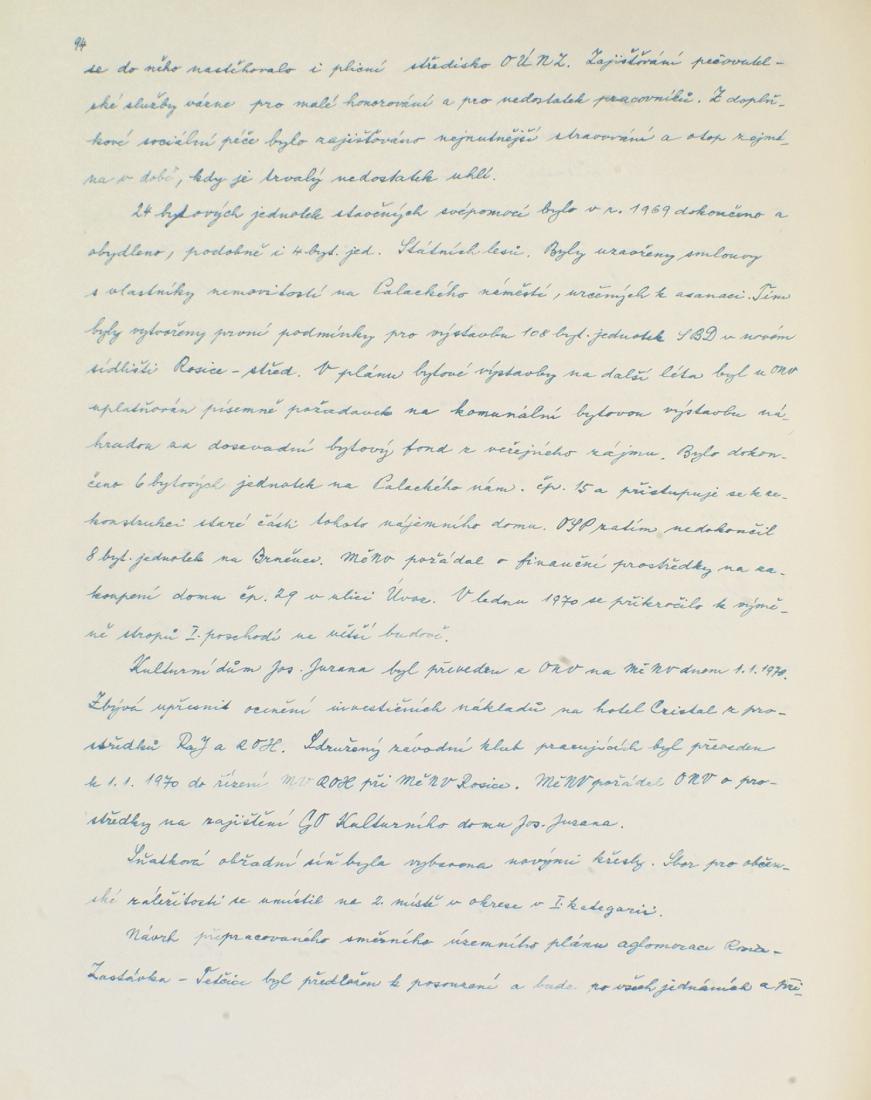 94
se do něho nastěhovalo i plicní středisko OÚNZ. Zajišťování pečovatel-
ské služby vázne pro malé honorování a pro nedostatek pracovníků. Z doplň-
kové sociální péče bylo zajišťováno nejnutnější stravování a otop zejmé-
na v době, kdy je trvalý nedostatek uhlí.
24 bytových jednotek stavěných svépomocí bylo v r. 1969 dokončeno a
obydleno, podobně i 4 byt. jed. Státních lesů. Byly uzavřeny smlouvy
s vlastníky nemovitostí na Palackého náměstí, určených k asanaci. Tím
byly vytvořeny první podmínky pro výstavbu 108 byt. jednotek SBD v novém
sídlišti Rosice - střed. V plánu bytové výstavby na další léta byl u ONV
uplatňován písemně požadavek na komunální bytovou výstavbu ná-
hradou za dosavadní bytový fond z veřejného zájmu. Bylo dokon-
čeno 6 bytových jednotek na Palackého nám. čp. 15 a přistupuje se k re-
konstrukci staré části tohoto nájemního domu. OSP zatím nedokončil
8 byt. jednotek na Brněnce. MěNV požádal o finanční prostředky na za-
koupení domu čp. 29 v ulici Úvoz. V lednu 1970 se přikročilo k výmě-
ně stropů I. poschodí ve větší budově.
Kulturní dům Jos. Jurana byl převeden z ONV na MěNV dnem 1.1.1970.
Zbývá upřesnit ocenění investičních nákladů na hotel Cristal z pro-
středků RaJ a ROH. Sdružený závodní klub pracujících byl převeden
k 1.1. 1970 do řízení MV ROH při MěNV Rosice. MěNV požádal ONV o pro-
středky na zajištění GO Kulturního domu Jos. Jurana.
Sňatková obřadní síň byla vybavena novými křesly. Sbor pro občan-
ské záležitosti se umístil na 2. místě v okrese v I. kategorii.
Návrh přepracovaného směrného územního plánu aglomerace Rosice -
Zastávka - Tetčice byl předložen k posouzení a bude po všech jednáních a při-